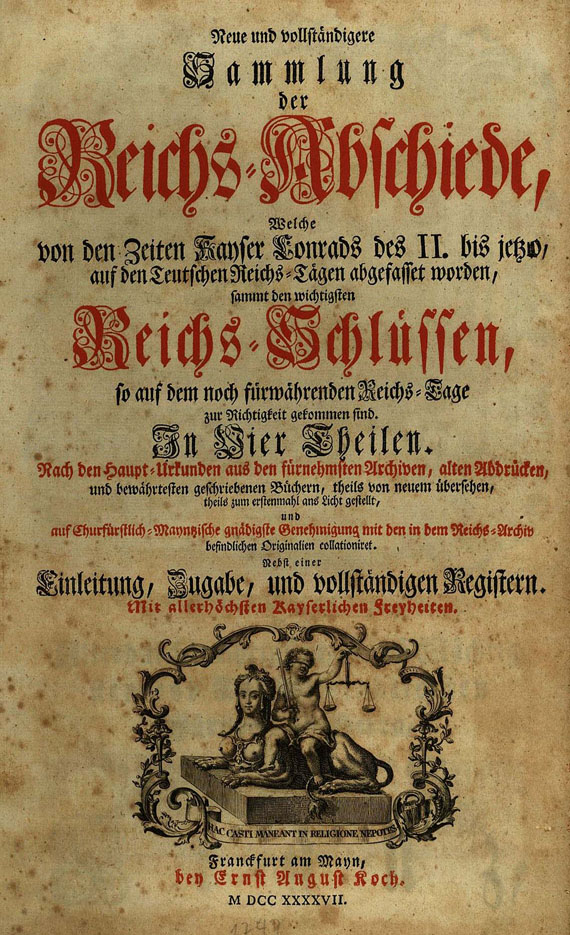 Neue und vollständigere
Sammlung
der
Reichs-Abschiede,
Welche
von den Zeiten Kayser Conrads des II. bis jetzo/
auf den Teutschen Reichs-Tägen abgefasset worden,
sammt den wichtigsten
Reichs-Schlüssen,
so auf dem noch fürwährenden Reichs-Tage
zur Richtigkeit gekommen sind.
In Vier Theilen.
Nach den Haupt-Urkunden aus den fürnehmsten Archiven, alten Abdrücken,
und bewährtesten geschriebenen Büchern, theils von neuem übersehen,
theils zum erstenmahl ans Licht gestellt,
und
auf Churfürstlich-Mayntzische gnädigste Genehmigung mit den in dem Reichs-Archiv
befindlichen Originalien collationiret.
Nebst einer
Einleitung, Zugabe, und vollständigen Registern.
Mit allerhöchsten Kayserlichen Freyheiten.
HAC CASTI MANEANT IN RELIGIONE NEPOTES
Franckfurt am Mayn,
bey Ernst August Koch.
M DCC XXXXVII.